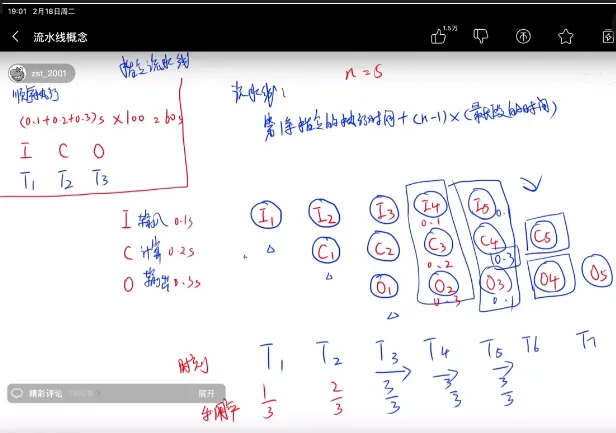 19:01 2月18日周二
流水线概念
1.5万
zst_2001
指令流水线
n=5
顺序执行
(0.1+0.2+0.3)s ×100=60s
I C O
T1 T2 T3
流水线:
第1条指令的执行时间+(n-1)×(最长段的时间)
I 输入 0.1s
C 计算 0.2s
O 输出 0.3s
I1 I2 I3 I4 I5
0.1 0.
C1 C2 C3 C4 C5
0.2 0.3
O1 O2 O3 O4 O5
0.3 0.1
时刻 T1 T2 T3 T4 T5 T6 T7
精彩评论 展开
利用率 1/3 2/3 3/3 3/3 3/3